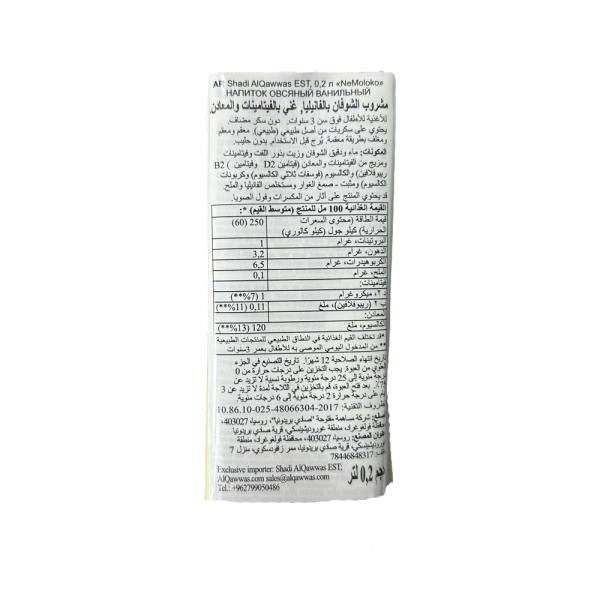 AR Shadi AlQawwas EST, 0,2 л «NeMoloko»
НАПИТОК ОВСЯНЫЙ ВАНИЛЬНЫЙ
مشروب الشوفان بالفانيليا, غني بالفيتامينات والمعادن,
للأغذية للأطفال فوق سن 3 سنوات. دون سكر مضاف.
يحتوي على سكريات من أصل طبيعي (طبيعي). معقم ومعقم
ومغلف بطريقة معقمة. يُرج قبل الاستخدام. بدون حليب.
المكونات: ماء ودقيق الشوفان وزيت بذور اللفت وفيتامينات
ومزيج من الفيتامينات والمعادن (فيتامين D2 وفيتامين B2 (
ريبوفلافين) والكالسيوم (فوسفات ثلاثي الكالسيوم) وكربونات
الكالسيوم) ومثبت - صمغ الغوار ومستخلص الفانيليا والملح.
قد يحتوي المنتج على آثار من المكسرات وفول الصويا.
القيمة الغذائية 100 مل للمنتج (متوسط القيم) *:
قيمة الطاقة (محتوى السعرات 250 (60)
الحرارية) كيلو جول (كيلو كالوري)
البروتينات، غرام 1
الدهون، غرام 3,2
الكربوهيدرات، غرام 6,5
الملح، غرام 0,1
فيتامينات:
د ٢، ميكروغرام 1 (7%**)
ب ٢ (ريبوفلافين)، ملغ 0,11 (11%**)
المعادن:
الكالسيوم، ملغ 120 (13%**)
*قد تختلف القيم الغذائية في النطاق الطبيعي للمنتجات الطبيعية
** من المدخول اليومي الموصى به للأطفال بعمر 3سنوات
تاريخ انتهاء الصلاحية 12 شهرًا. تاريخ التصنيع في الجزء
من العبوة. يجب التخزين على درجات حرارة من 0
درجة مئوية إلى 25 درجة مئوية ورطوبة نسبية لا تزيد عن
75٪. بعد فتح العبوة، قم بالتخزين في الثلاجة لمدة لا تزيد عن 3
على درجة حرارة 2 درجة مئوية إلى 6 درجات مئوية.
التقنية: 10.86.10-025-48066304-2017
شركة مساهمة مفتوحة "صادي بريدونيا"، روسيا، 403027،
محافظة فولغوغراد، منطقة غوروديشينسكي، قرية صادي بريدونيا
عنوان المصنع: روسيا، 403027، محافظة فولغوغراد، منطقة
غوروديشينسكي، قرية صادي بريدونيا، ممر زفودسكوي، منزل 7
78446848317
حجم 0,2 لتر
Exclusive importer: Shadi AlQawwas EST;
AlQawwas.com sales@alqawwas.com
Tel.: +962799050486